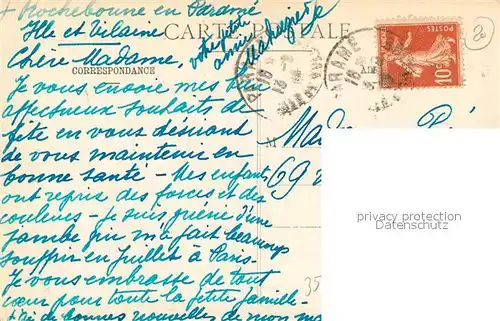 + Rochebonne en Paramé
Ille et Vilaine
CARTE POSTALE
votre petite
amie
Chère Madame,
CORRESPONDANCE
Je vous envoie mes bien
affectueux souhaits de
fête en vous désirant
de vous maintenir en
bonne santé – Mes enfants
ont repris des forces et des
couleurs – je suis guérie d'une
jambe qui m'a fait beaucoup
souffrir en juillet à Paris.
Je vous embrasse de tout
cœur pour toute la petite famille –
de bonnes nouvelles de mon
M
Mada
69
POSTES
10c
35
privacy protection
oldthing.de